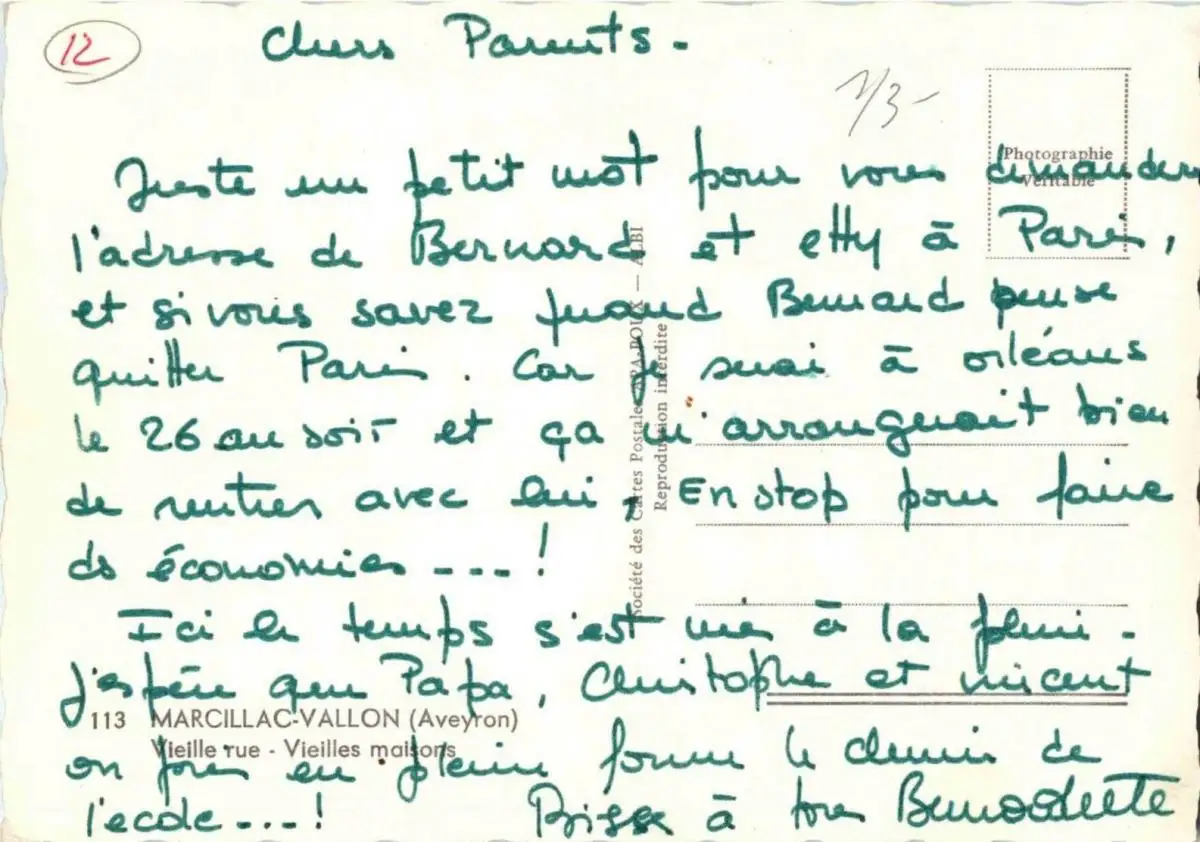 12
Chers Parents -
1/3-
Photographie
Véritable
Juste un petit mot pour vous demander
l'adresse de Bernard et etty à Paris,
et si vous savez quand Bernard pense
quitter Paris. Car je serai à orléans
le 26 au soir et ça m'arrangerait bien
de rentrer avec lui, En stop pour faire
des économies ---!
Ici le temps s'est mis à la pluie -
J'espère que Papa, Christophe et vincent
on pris en pleine forme le chemin de
l'école ---!
Bises à tous Bernadette
113 MARCILLAC-VALLON (Aveyron)
Vieille rue - Vieilles maisons
Société des Cartes Postales APA-POUX — ALBI
Reproduction interdite